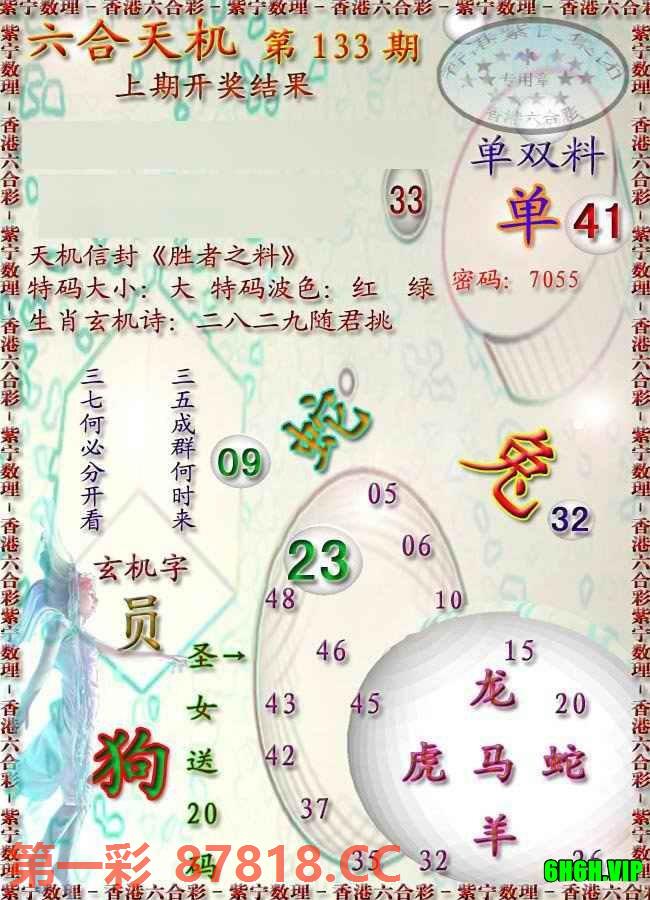 紫宁数理－香港六合彩－紫宁数理－香港六合彩－紫宁数理－香港六合彩
六合天机 第133期
上期开奖结果
专用章
香港六合彩
单双料
33
单 41
天机信封《胜者之料》
特码大小：大 特码波色：红 绿
密码：7055
生肖玄机诗：二八二九随君挑
三七何必分开看
三五成群何时来
蛇
09
兔
32
05
23
06
玄机字
员
48
10
圣→
女
送
20
码
46
15
龙
43
45
20
狗
虎 马 蛇
42
羊
37
35
32
第一彩 87818.CC
6H6H.VIP
紫宁数理－香港六合彩－紫宁数理－香港六合彩－紫宁数理－香港六合彩